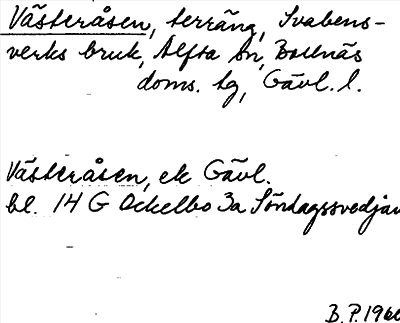 Västeråsen, terräng, Svabens-
verks bruk, Alfta sn, Bollnäs
doms. tg, Gävl. l.
Västeråsen, ek Gävl.
bl. 14 G Ockelbo 3a Söndagssvedjan
B.P. 1960